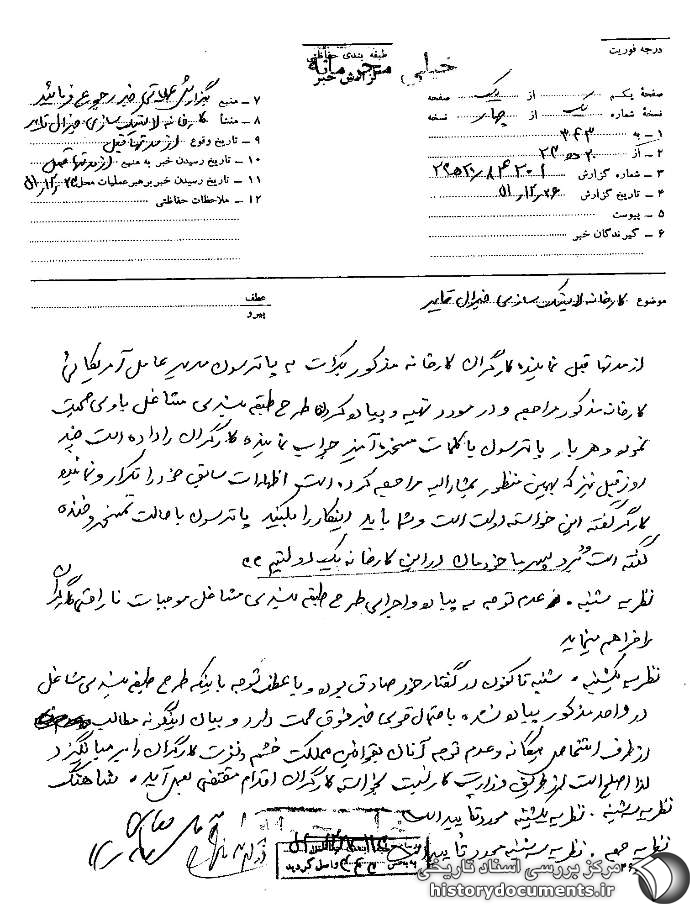 درجه فوریت
طبقه بندی حفاظتی
خیلی محرمانه
گزارش خبر
صفحه یکم از یک صفحه
نسخه شماره یک از چهار نسخه
۱ - به ۳۴۳
۲ - از ۲۰ ﻫ ۲۳
۳ - شماره گزارش
۴ - تاریخ گزارش
۵ - پیوست
۶ - گیرندگان خبر
۷ - منبع بگزارش عملیاتی خبر رجوع فرمائید
۸ - منشأ کارخانه لاستیک سازی جنرال تایر
۹ - تاریخ وقوع از مدتها قبل
۱۰ - تاریخ رسیدن خبر به منبع از مدتها قبل
۱۱ - تاریخ رسیدن خبر برهبر عملیات محل
۱۲ - ملاحظات حفاظتی
موضوع کارخانه لاستیک سازی جنرال تایر
عطف
پیرو
از مدتها قبل نماینده کارگران کارخانه مذکور بکرات به پاترسون مدیر عامل آمریکائی
کارخانه مذکور مراجعه و در مورد تهیه و پیاده کردن طرح طبقه بندی مشاغل با وی صحبت
نموده و هر بار پاترسون با کلمات مسخره آمیز جواب نماینده کارگران را داده است چند
روز قبل نیز که بهمین منظور بمشارالیه مراجعه کرده است اظهارات سابق خود را تکرار و نماینده
کارگر گفته این خواسته دولت است و شما باید اینکار را بکنید پاترسون با حالت تمسخر و خنده
گفته است برو پسر ما خودمان در این کارخانه یک دولتیم
نظریه شنبه . عدم توجه به پیاده و اجرای طرح طبقه بندی مشاغل موجبات ناراحتی کارگران
را فراهم مینماید
نظریه یکشنبه . شنبه تاکنون در گفتار خود صادق بوده و با عطف توجه باینکه طرح طبقه بندی مشاغل
در واحد مذکور پیاده نشده باحتمال قوی خبر فوق صحت دارد و بیان اینگونه مطالب
از طرف اشخاص بیگانه و عدم توجه آنان بقوانین مملکت خشم و نفرت کارگران را بر میانگیزد
لذا اصلح است از طریق وزارت کار نسبت بخواسته کارگران اقدام مقتضی بعمل آید . شاهنگ
نظریه سه شنبه . نظریه یکشنبه مورد تأیید است
نظریه جمعه . نظریه سه شنبه مورد تأیید است
مرکز بررسی اسناد تاریخی
historydocuments.ir